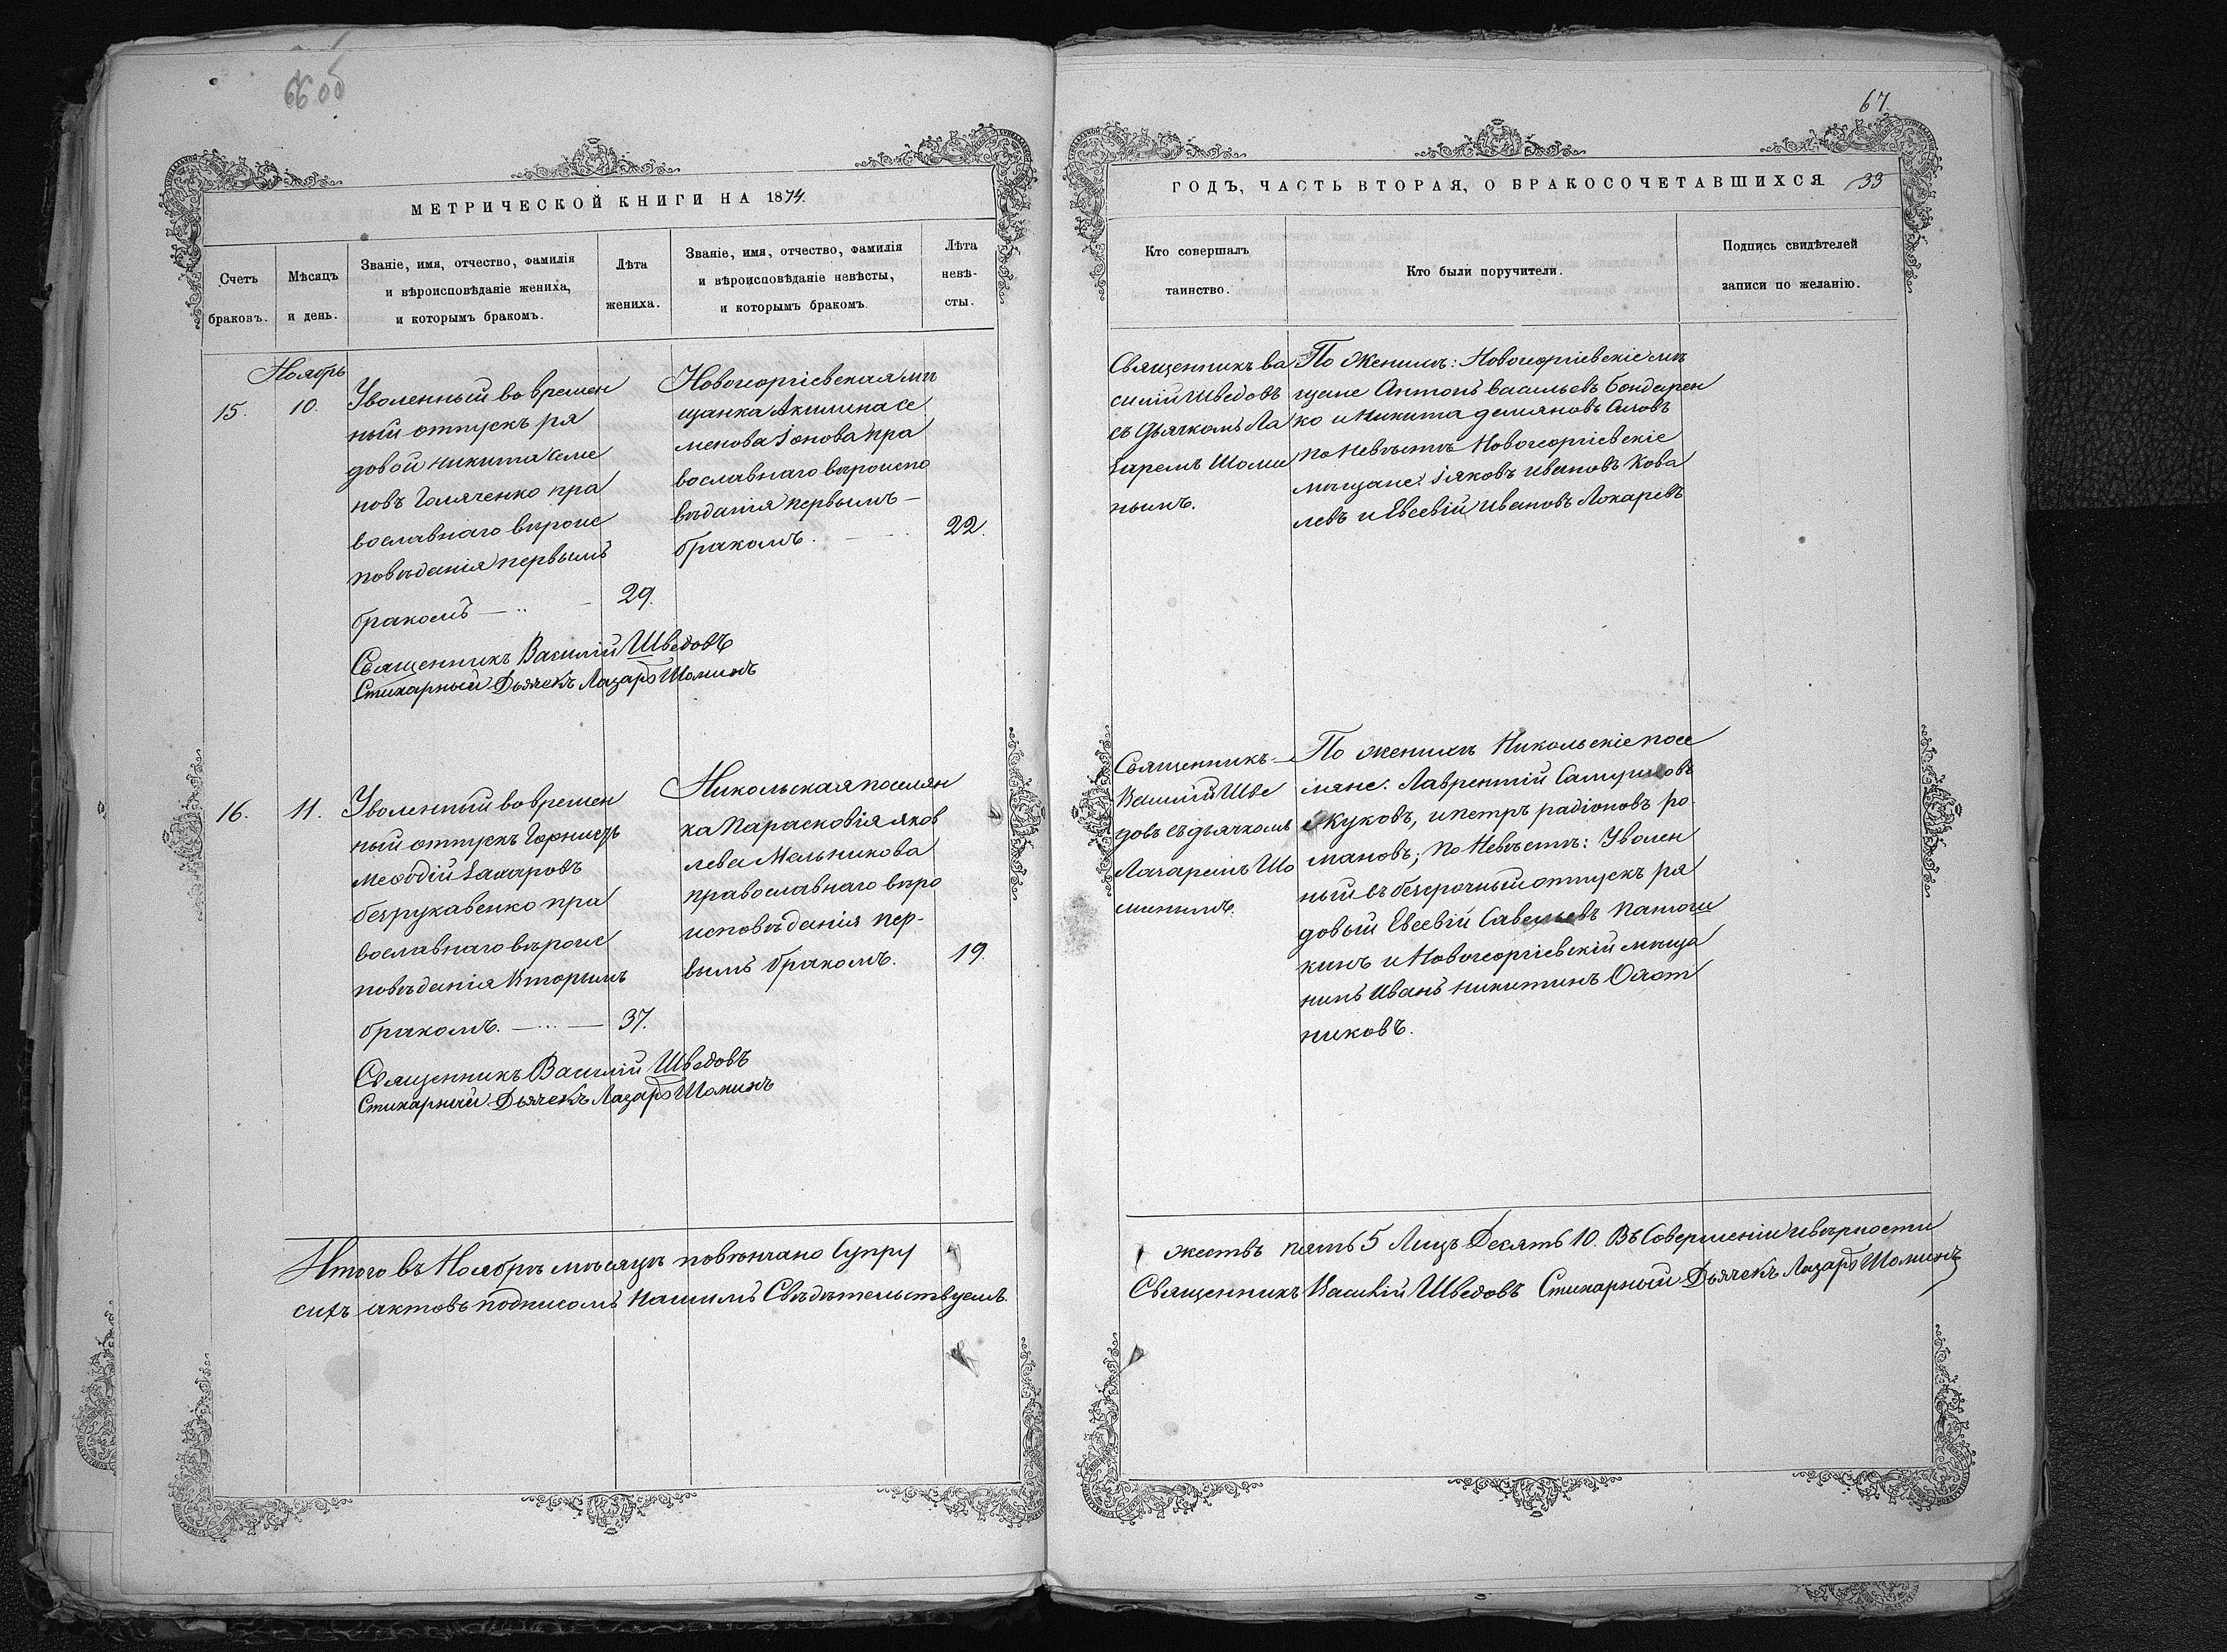 66 об
МЕТРИЧЕСКОЙ КНИГИ НА 1874.
Счетъ
браковъ.
Мѣсяцъ
и день.
Званіе, имя, отчество, фамилія
и вѣроисповѣданіе жениха,
и которымъ бракомъ.
Лѣта
жениха.
Званіе, имя, отчество, фамилія
и вѣроисповѣданіе невѣсты,
и которымъ бракомъ.
Лѣта
невѣ-
сты.
Ноябрь
15.
10.
Уволенный во времен
ный отпускъ ря
довой Никита Семе
новъ пра
вославнаго вѣроис
повѣданія первымъ
бракомъ — 29.
Новогеоргіевская мѣ
щанка Акилина Се
менова Іонова пра
вославнаго вѣроиспо
вѣданія первымъ —
бракомъ. 22.
Священникъ Василій Шведовъ
Стихарный Дьячекъ Лазарь Шоминъ
16.
11.
Уволенный во времен
ный отпускъ Горнистъ
Меѳодій Захаровъ
безрукавенко пра
вославнаго вѣроис
повѣданія Вторымъ
бракомъ. — 37.
Никольская поселян
ка Парасковія яков
лева Мельникова
православнаго вѣро
исповѣданія пер-
вымъ бракомъ. 19.
Священникъ Василій Шведовъ
Стихарный Дьячекъ Лазарь Шоминъ
Итого въ Ноябрѣ мѣсяцѣ повѣнчано Супру
сихъ актовъ подписомъ нашимъ Свѣдѣтельствуемъ.
67.
ГОДЪ, ЧАСТЬ ВТОРАЯ, О БРАКОСОЧЕТАВШИХСЯ. 33
Кто совершалъ
таинство.
Кто были поручители.
Подпись свидѣтелей
записи по желанію.
Священникъ Ва
силій Шведовъ
съ Дьячкомъ Ла
заремъ Шоми
нымъ.
По Женихѣ: Новогеоргіевскіе мѣ
щане Антонъ васильевъ Бондарен
ко и Никита демяновъ
по Невѣстѣ Новогеоргіевскіе
мѣщане: Іяковъ Ивановъ Кова
левъ и Евсевій Ивановъ Локаревъ
Священникъ
Василій Шве
довъ съ дьячкомъ
Лазаремъ Шо
минымъ.
По женихѣ Никольскіе посе
ляне: Лаврентій
Жуковъ, и петръ радіоновъ ро
мановъ; по Невѣстѣ: Уволен
ный въ безсрочный отпускъ ря
довый Евсевій Савельевъ
кинъ и Новогеоргіевскій мѣща
нинъ Иванъ Никитинъ Охот
никовъ.
жествъ пять 5 Лицъ Десять 10. Въ Совершеніи и вѣрности
Священникъ Василій Шведовъ Стихарный Дьячекъ Лазарь Шоминъ